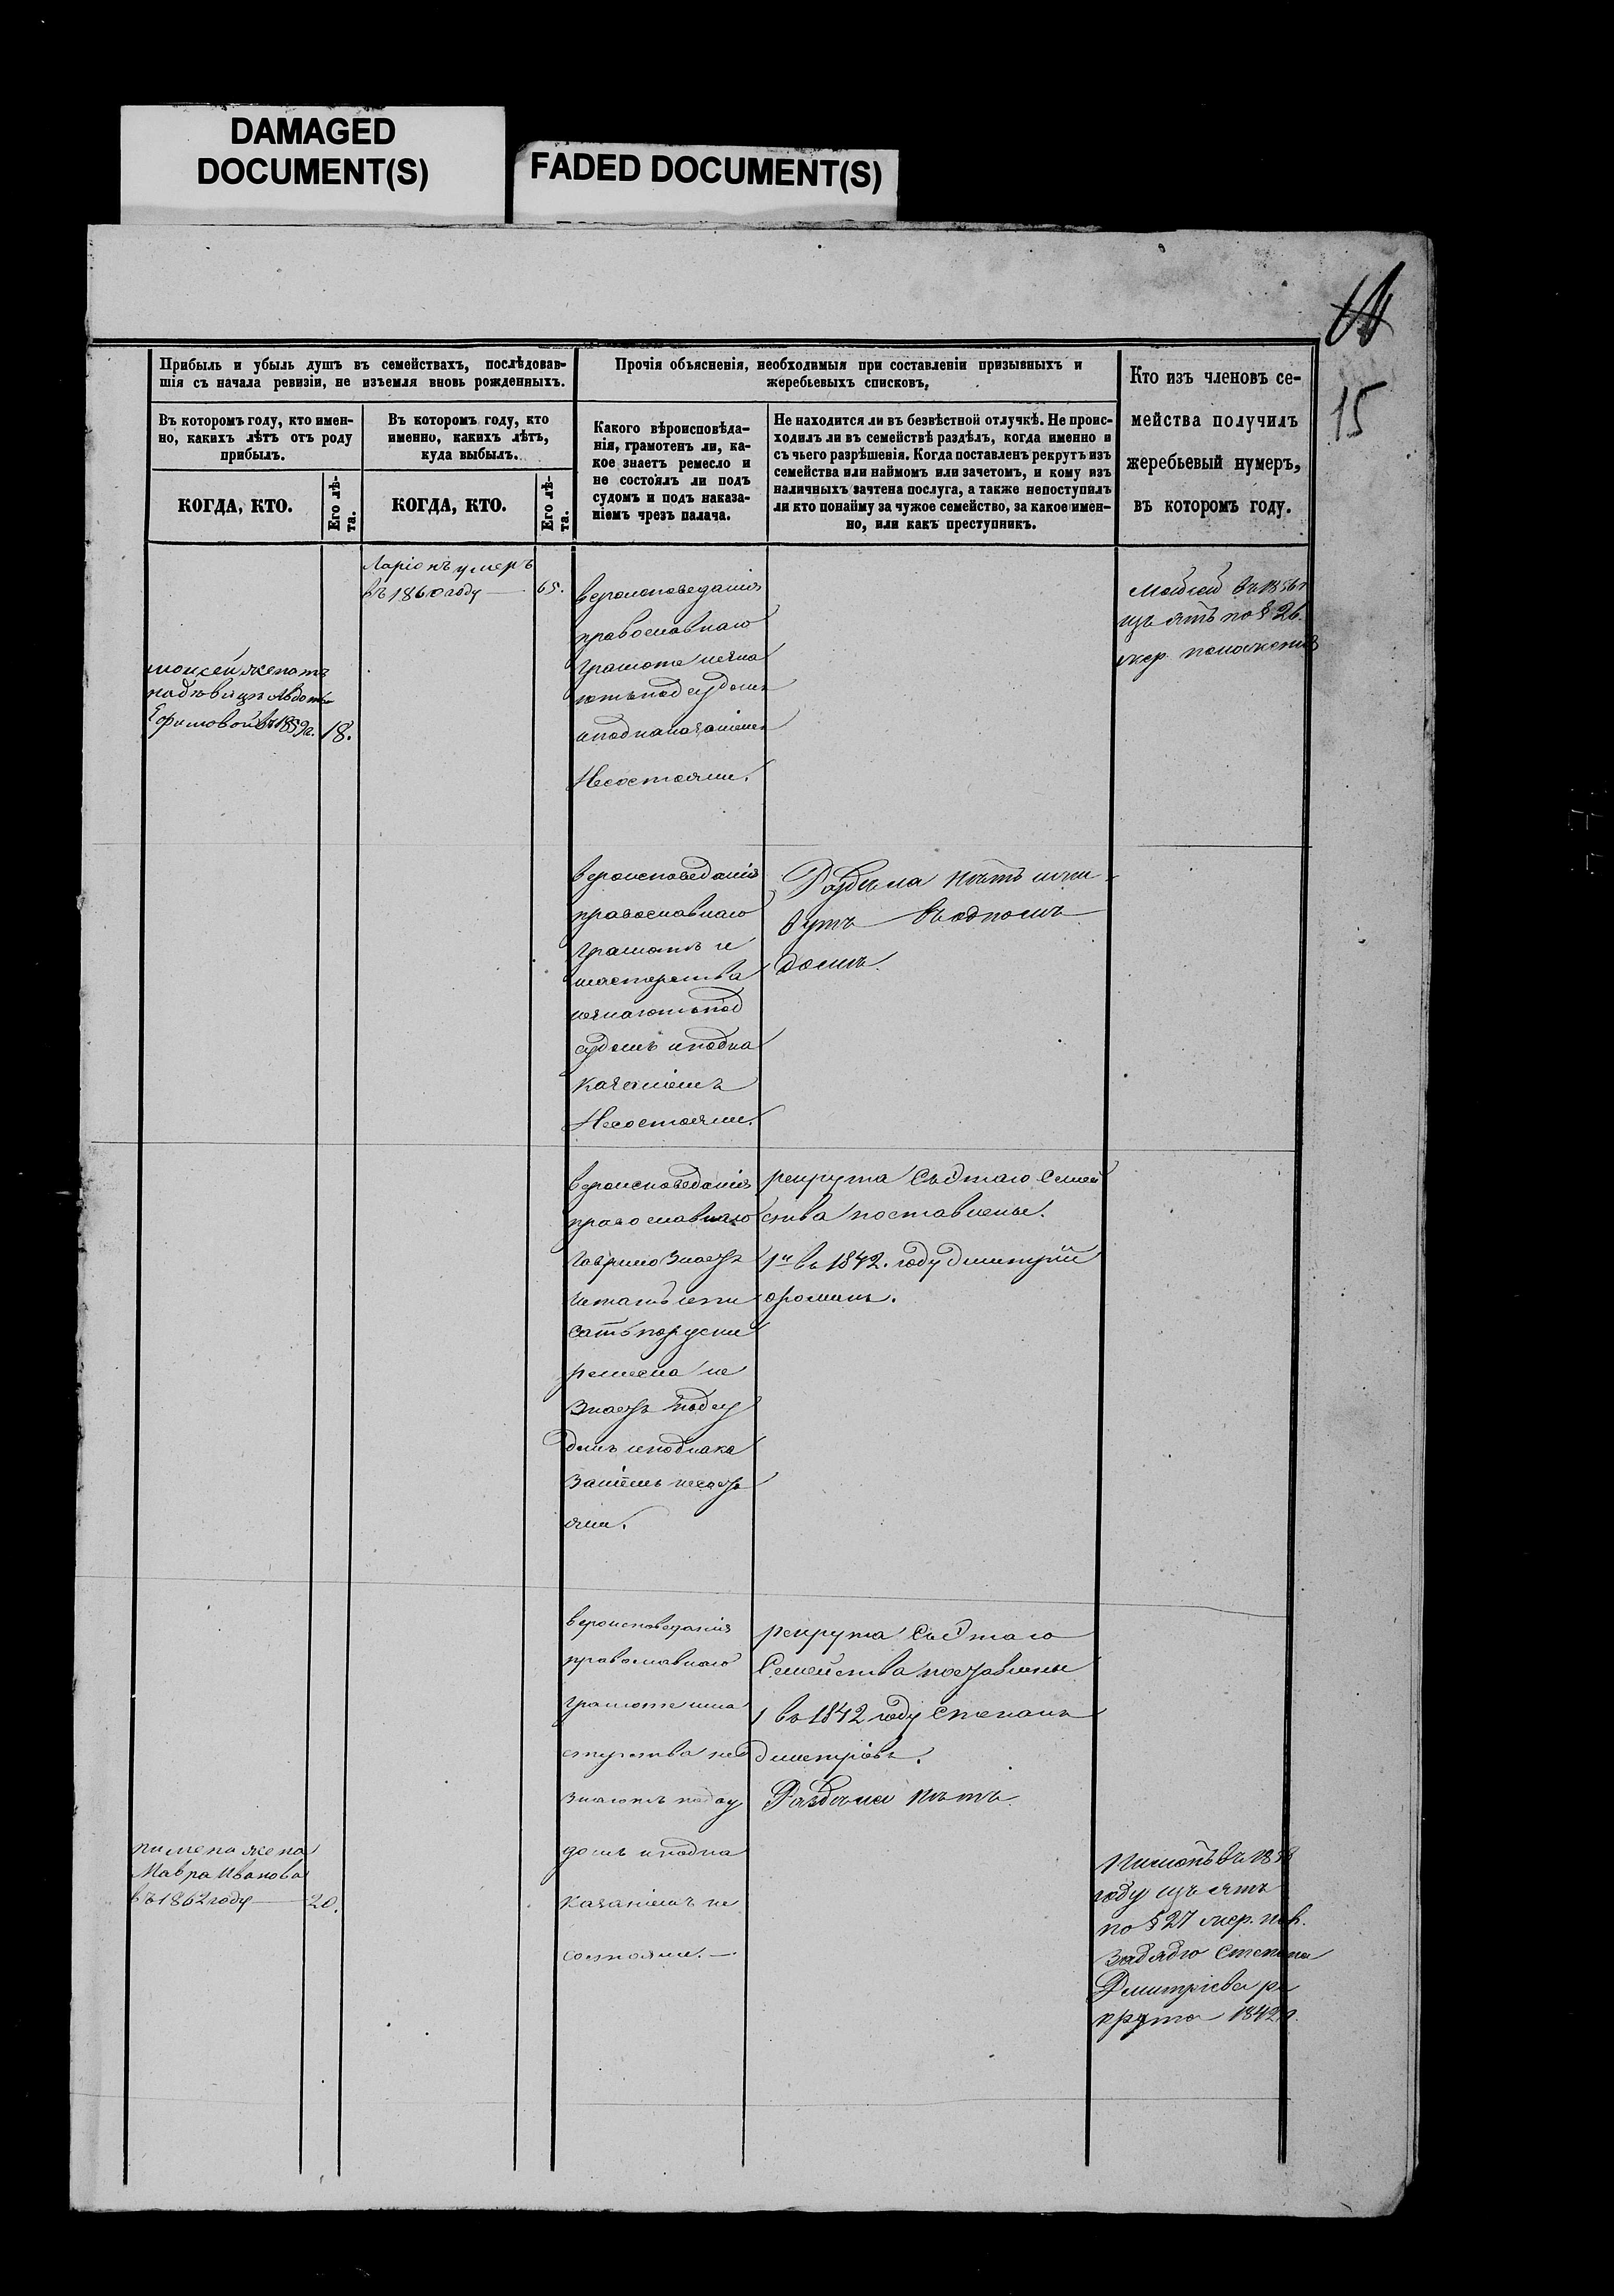 DAMAGED
DOCUMENT(S)
FADED DOCUMENT(S)
15
Прибыль и убыль душъ въ семействахъ, послѣдовав-
шія съ начала ревизіи, не изъемля вновь рожденныхъ.
Прочія объясненія, необходимыя при составленіи призывныхъ и
жеребьевыхъ списковъ.
Кто изъ членовъ се-
мейства получилъ
жеребьевый нумеръ,
въ которомъ году.
Въ которомъ году, кто имен-
но, какихъ лѣтъ отъ роду
прибылъ.
Въ которомъ году, кто
именно, какихъ лѣтъ,
куда выбылъ.
Какого вѣроисповѣда-
нія, грамотенъ ли, ка-
кое знаетъ ремесло и
не состоялъ ли подъ
судомъ и подъ наказа-
ніемъ чрезъ палача.
Не находится ли въ безвѣстной отлучкѣ. Не проис-
ходилъ ли въ семействѣ раздѣлъ, когда именно и
съ чьего разрѣшенія. Когда поставленъ рекрутъ изъ
семейства или наймомъ или зачетомъ, и кому изъ
наличныхъ зачтена послуга, а также непоступилъ
ли кто понайму за чужое семейство, за какое имен-
но, или какъ преступникъ.
КОГДА, КТО.
Его лѣ-
та.
КОГДА, КТО.
Его лѣ-
та.
Ларіонъ умеръ
въ 1860 году 65.
моисей женатъ
на дѣвицѣ Авдотьѣ
Ефимовой въ 1859 г. 18.
вероисповедания
православнаго
грамоте незна
ютъ под судомъ
и поднаказаниемъ
Несостояли.
изъятъ по § 26.
жер. положения
вероисповеданія
православнаго
грамотѣ и
мастерства
незнаютъ под
судомъ и подна
казаніемъ
Несостояли.
Раздела нѣтъ и жи
вутъ въ одномъ
доме.
вероисповеданія
православнаго
Гаврило знаетъ
читать и пи
сать поруски
ремесла не
знаетъ под су
домъ и поднака
заніемъ несост
яли.
рекрута съ этаго семей
ства поставлены.
1й въ 1842. году Дмитрий
фоминъ.
вероисповедания
православнаго
грамоте и ма
стерства не
знаютъ под су
домъ и подна
казаніемъ не
состояли. —
рекрута съ этаго
Семейства поставлены
1 въ 1842 году Степанъ
Дмитріевъ.
Раздела нѣтъ.
пимена жена
Мавра Иванова
въ 1862 году 20.
Пименъ въ 1858
году изъятъ
по § 27 жер. пол.
за дядю Степана
Дмитріева ре
крута 1842 г.